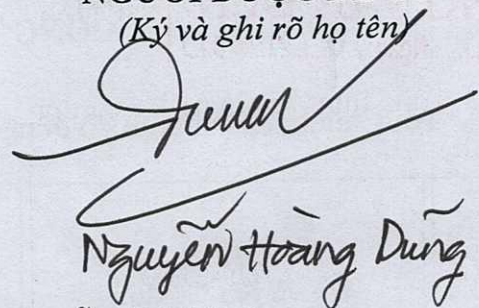 (Ký và ghi rõ họ tên)
Nguyễn Hoàng Dũng